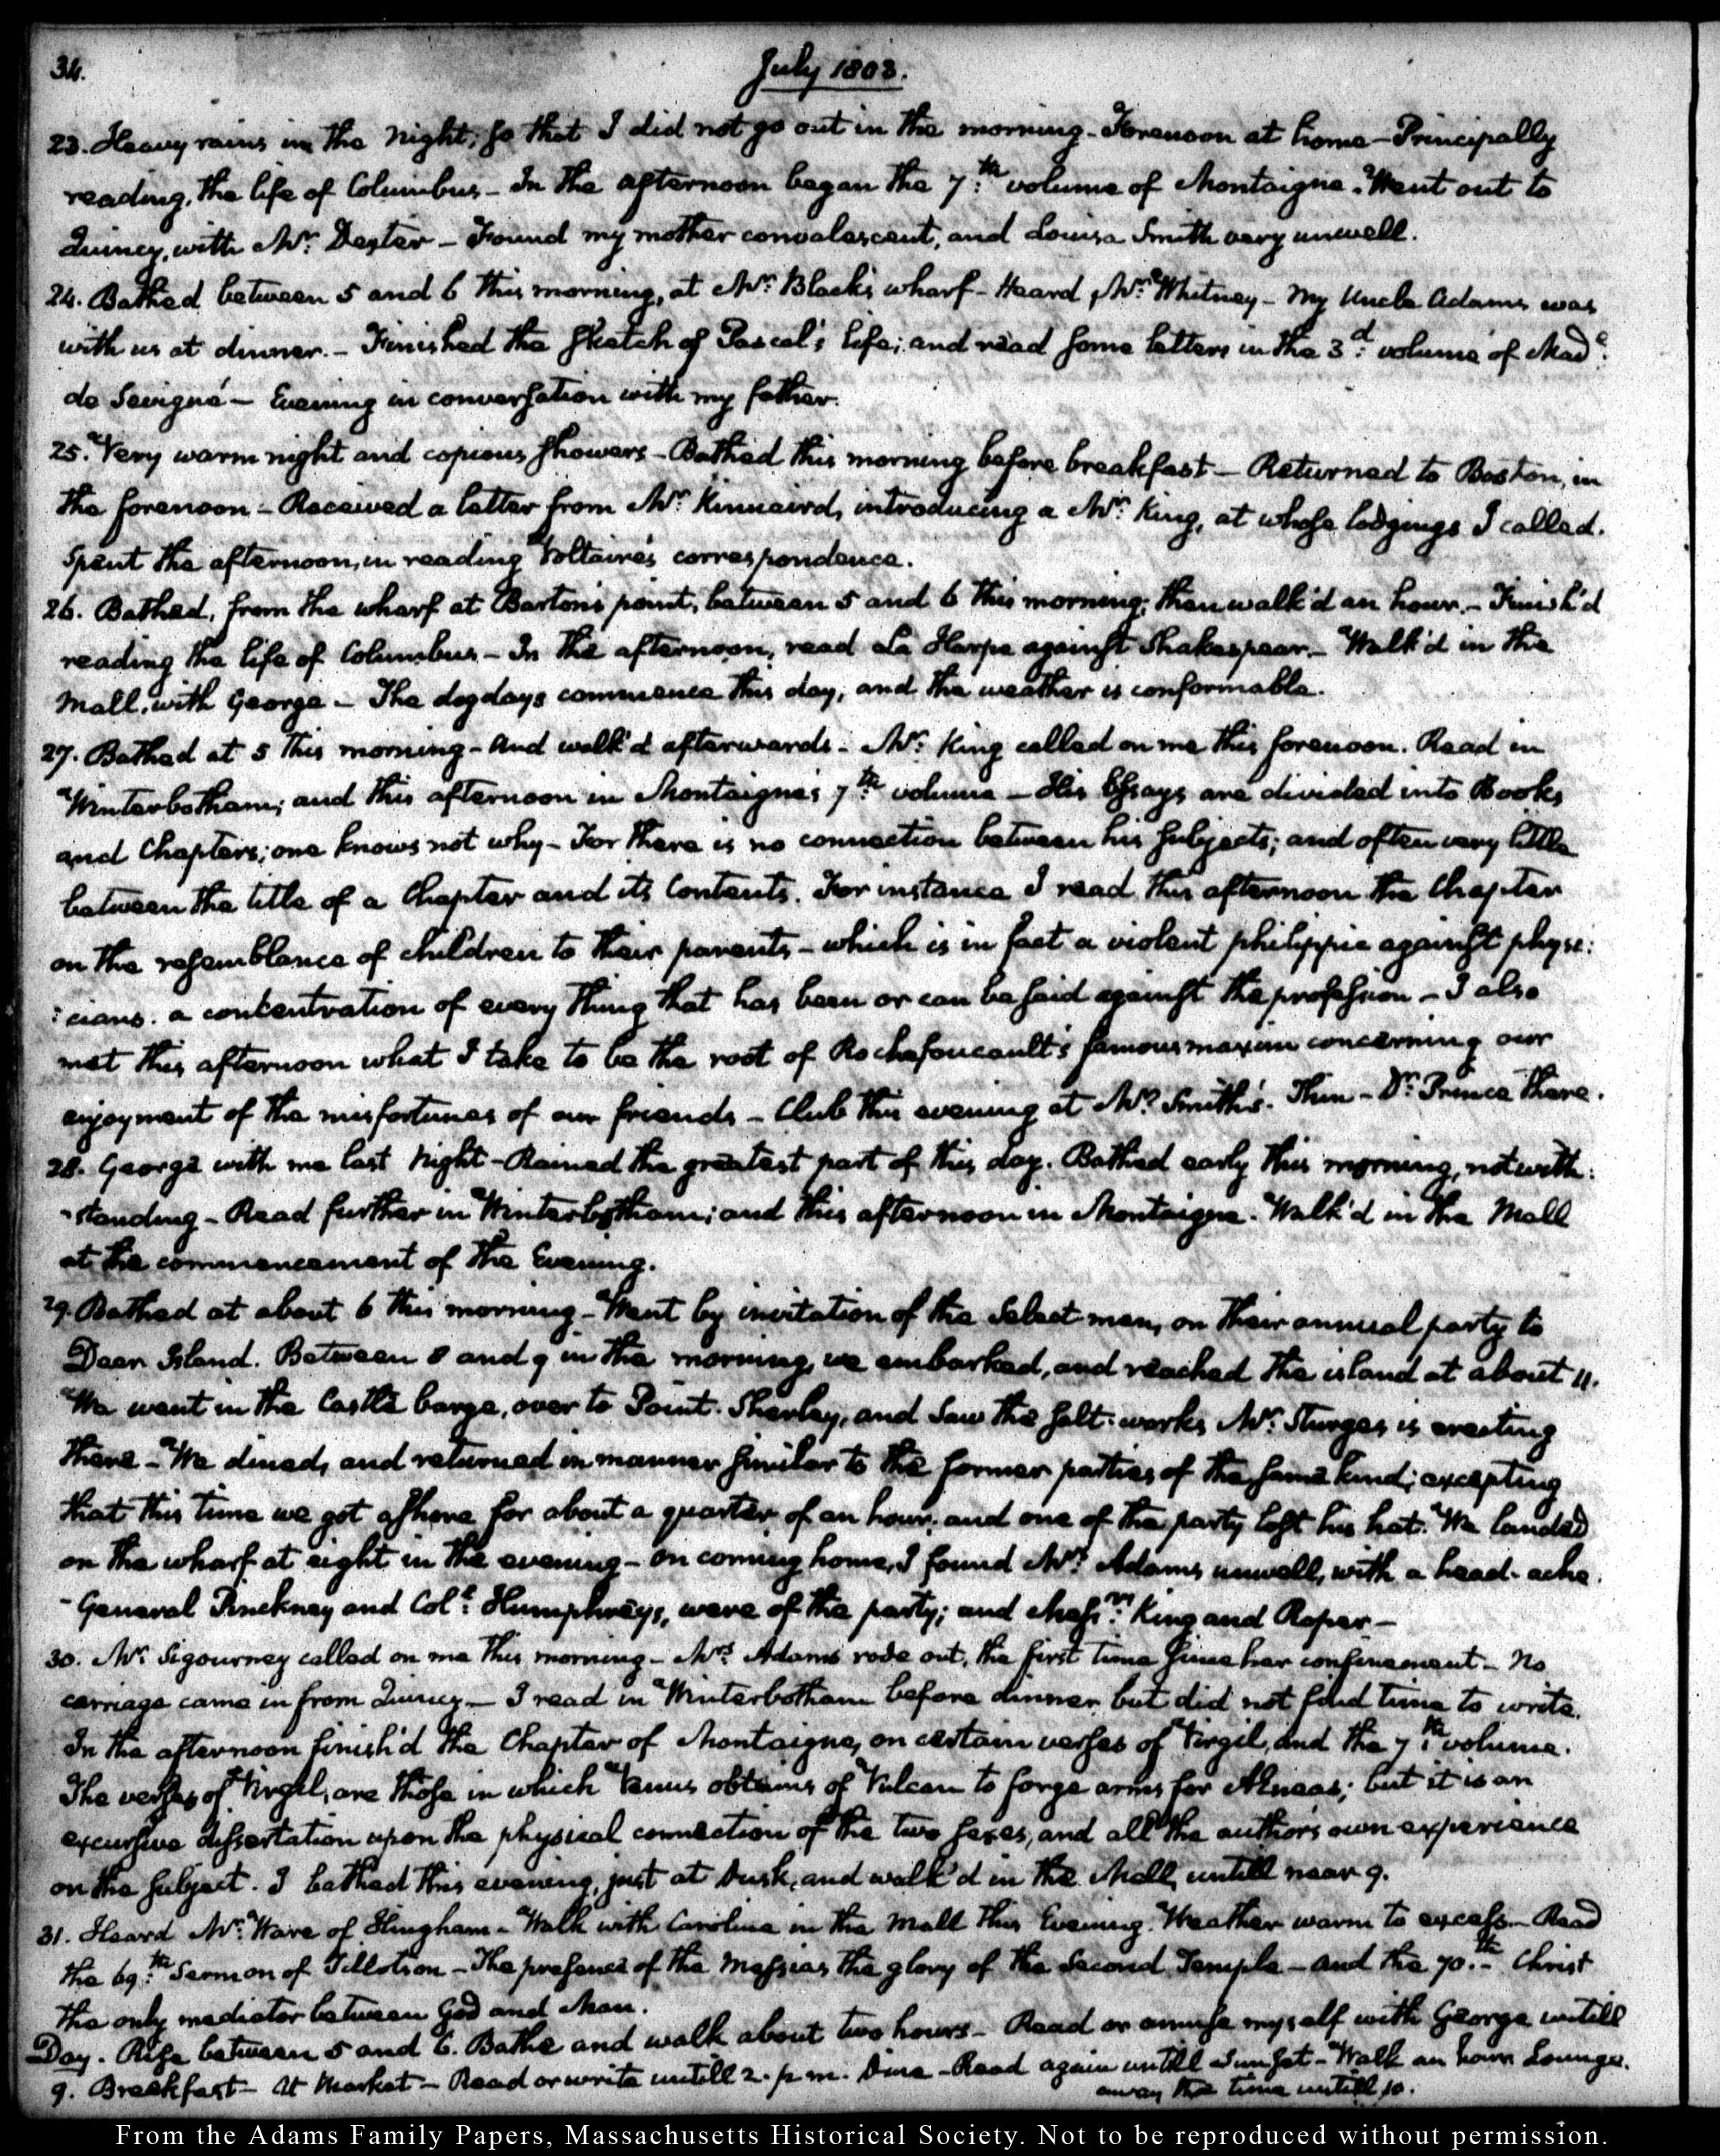 34.
July 1803.
23. Heavy rains in the night; so that I did not go out in the morning - Forenoon at home - Principally
reading, the life of Columbus - In the afternoon began the 7th. volume of Montaigne. Went out to
Quincy, with Mr. Dexter - Found my mother convalescent, and Louisa Smith very unwell.
24. Bathed between 5 and 6 this morning, at Mr. Black's wharf - Heard Mr. Whitney - My Uncle Adams was
with us at dinner. - Finished the sketch of Pascal's life; and read some letters in the 3d. volume of Made.
de Sevigné - Evening in conversation with my father.
25. Very warm night and copious showers - Bathed this morning before breakfast - Returned to Boston, in
the forenoon - Received a letter from Mr. Kinnaird, introducing a Mr. King, at whose lodgings I called.
Spent the afternoon, in reading Voltaire's correspondence.
26. Bathed, from the wharf at Barton's point, between 5 and 6 this morning; then walk'd an hour. - Finish'd
reading the life of Columbus - In the afternoon, read La Harpe against Shakespear. - Walk'd in the
Mall, with George - The dog days commence this day, and the weather is conformable.
27. Bathed at 5 this morning - And walk'd afterwards - Mr. King called on me this forenoon. Read in
Winterbotham; and this afternoon in Montaigne's 7th. volume - His Essays are divided into Books
and Chapters; one knows not why - For there is no connection between his subjects; and often very little
between the title of a Chapter and its Contents. For instance I read this afternoon the Chapter
on the resemblance of children to their parents - which is in fact a violent philippic against physi:
:cians. a concentration of every thing that has been or can be said against the profession - I also
met this afternoon what I take to be the root of Rochefoucault's famous maxim concerning our
enjoyment of the misfortunes of our friends - Club this evening at Mr. Smith's. Thin - Dr. Prince there.
28. George with me last night - Rained the greatest part of this day. Bathed early this morning, notwith:
-standing - Read further in Winterbotham; and this afternoon in Montaigne. Walk'd in the Mall
at the commencement of the Evening.
29. Bathed at about 6 this morning - Went by invitation of the Select-men, on their annual party to
Deer Island. Between 8 and 9 in the morning, we embarked, and reached the island at about 11.
We went in the Castle barge, over to Point-Sherley, and saw the salt-works Mr. Sturges is erecting
there - We dined, and returned in manner similar to the former parties of the same kind; excepting
that this time we got ashore for about a quarter of an hour; and one of the party lost his hat. We landed
on the wharf at eight in the evening - On coming home, I found Mrs. Adams unwell, with a head-ache.
- General Pinckney and Coll. Humphreys, were of the party; and Messrs. King and Roper -
30. Mr. Sigourney called on me this morning - Mrs. Adams rode out, the first time since her confinement - No
carriage came in from Quincy - I read in Winterbotham before dinner, but did not find time to write.
In the afternoon finish'd the Chapter of Montaigne, on certain verses of Virgil, and the 7th. volume.
The verses of Virgil, are those in which Venus obtains of Vulcan to forge arms for Aeneas; but it is an
excursive dissertation upon the physical connection of the two sexes, and all the author's own experience
on the subject. I bathed this evening, just at dusk, and walk'd in the Mall, untill near 9.
31. Heard Mr. Ware of Hingham - Walk with Caroline in the Mall this Evening. Weather warm to excess - Read
the 69th. Sermon of Tillotson - The presence of the Messias the glory of the Second Temple - And the 70th. Christ
the only mediator between God and Man.
Day. Rise between 5 and 6. Bathe and walk about two hours - Read or amuse myself with George untill
9. Breakfast - At Market - Read or write untill 2. p.m. Dine - Read again untill sunset - Walk an hour Lounge
away the time untill 10.
From the Adams Family Papers, Massachusetts Historical Society. Not to be reproduced without permission.